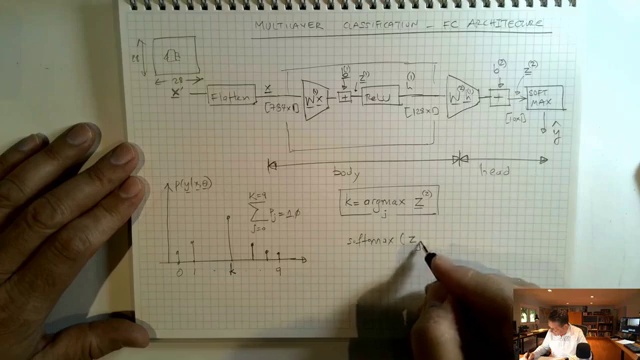 MULTILAYER CLASSIFICATION - FC ARCHITECTURE
28
28
X
Flatten
x
[784x1]
W x
b(1)
+
z(1)
ReLU
h(1)
[128x1]
W(2) h(1)
b(2)
+
z(2)
[10x1]
SOFT
MAX
ŷ
body
head
P(y|x,θ)
K=9
Σ Pj = 1.0
j=0
0 1 k 9
K = argmax z(2)
j
softmax ( z